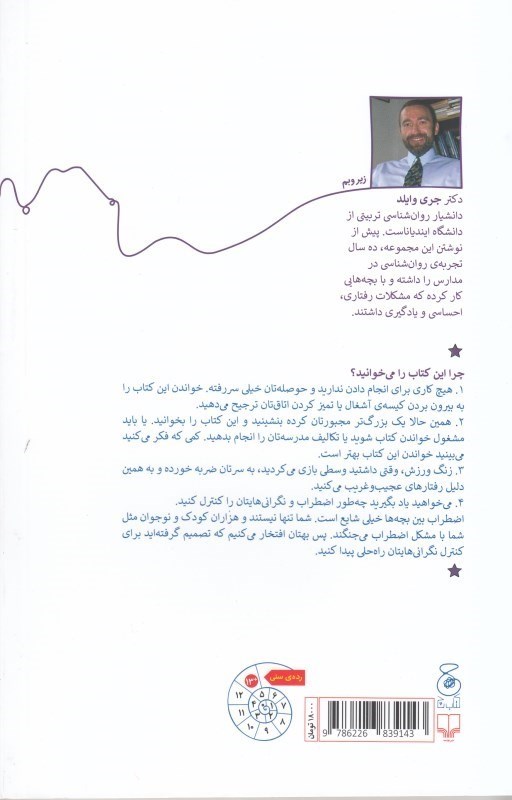 زیر و بم
دکتر جری وایلد
دانشیار روان‌شناسی تربیتی از
دانشگاه ایندیاناست. پیش از
نوشتن این مجموعه، ده سال
تجربه‌ی روان‌شناسی در
مدارس را داشته و با بچه‌هایی
کار کرده که مشکلات رفتاری،
احساسی و یادگیری داشتند.
چرا این کتاب را می‌خوانید؟
۱. هیچ کاری برای انجام دادن ندارید و حوصله‌تان خیلی سررفته. خواندن این کتاب را
به بیرون بردن کیسه‌ی آشغال یا تمیز کردن اتاق‌تان ترجیح می‌دهید.
۲. همین حالا یک بزرگ‌تر مجبورتان کرده بنشینید و این کتاب را بخوانید. یا باید
مشغول خواندن کتاب شوید یا تکالیف مدرسه‌تان را انجام بدهید. کمی که فکر می‌کنید
می‌بینید خواندن این کتاب بهتر است.
۳. زنگ ورزش، وقتی داشتید وسطی بازی می‌کردید، به سرتان ضربه خورده و به همین
دلیل رفتارهای عجیب‌وغریب می‌کنید.
۴. می‌خواهید یاد بگیرید چه‌طور اضطراب و نگرانی‌هایتان را کنترل کنید.
اضطراب بین بچه‌ها خیلی شایع است. شما تنها نیستند و هزاران کودک و نوجوان مثل
شما با مشکل اضطراب می‌جنگند. پس بهتان افتخار می‌کنیم که تصمیم گرفته‌اید برای
کنترل نگرانی‌هایتان راه‌حلی پیدا کنید.
رده‌ی سنی
+۱۳
۱۲ ۱۱ ۱۰ ۹ ۸ ۷ ۶ ۵ ۴ ۳ ۲ ۱
۱۸۰۰۰ تومان
9 786226 839143